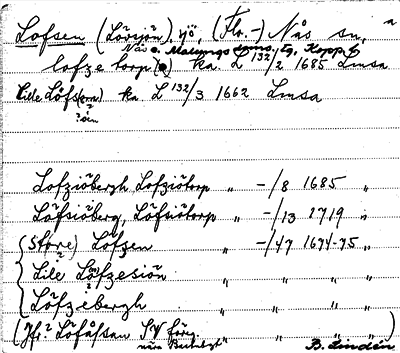 Lofsen (Lövsjön), sjö, (Flr. -) Nås sn,
Nås o. Malungs doms., Tg, Kopp. L
lofze torp (a) ka L 132/2 1685 Lmsa
Lille Löfs(orn) ka L 132/3 1662 Lmsa
? sön
Lofziöbergh Lofziötorp " -/8 1685 "
Löfsiöberg, Löfsiötorp " -/13 1719 "
(Store) Löfzen " -/47 1674-75 "
Lile Löfzesiön " " " "
Löfzebergh " " " "
(Jfr? Löfåssan SV förg. " " " ")
B. Lindén